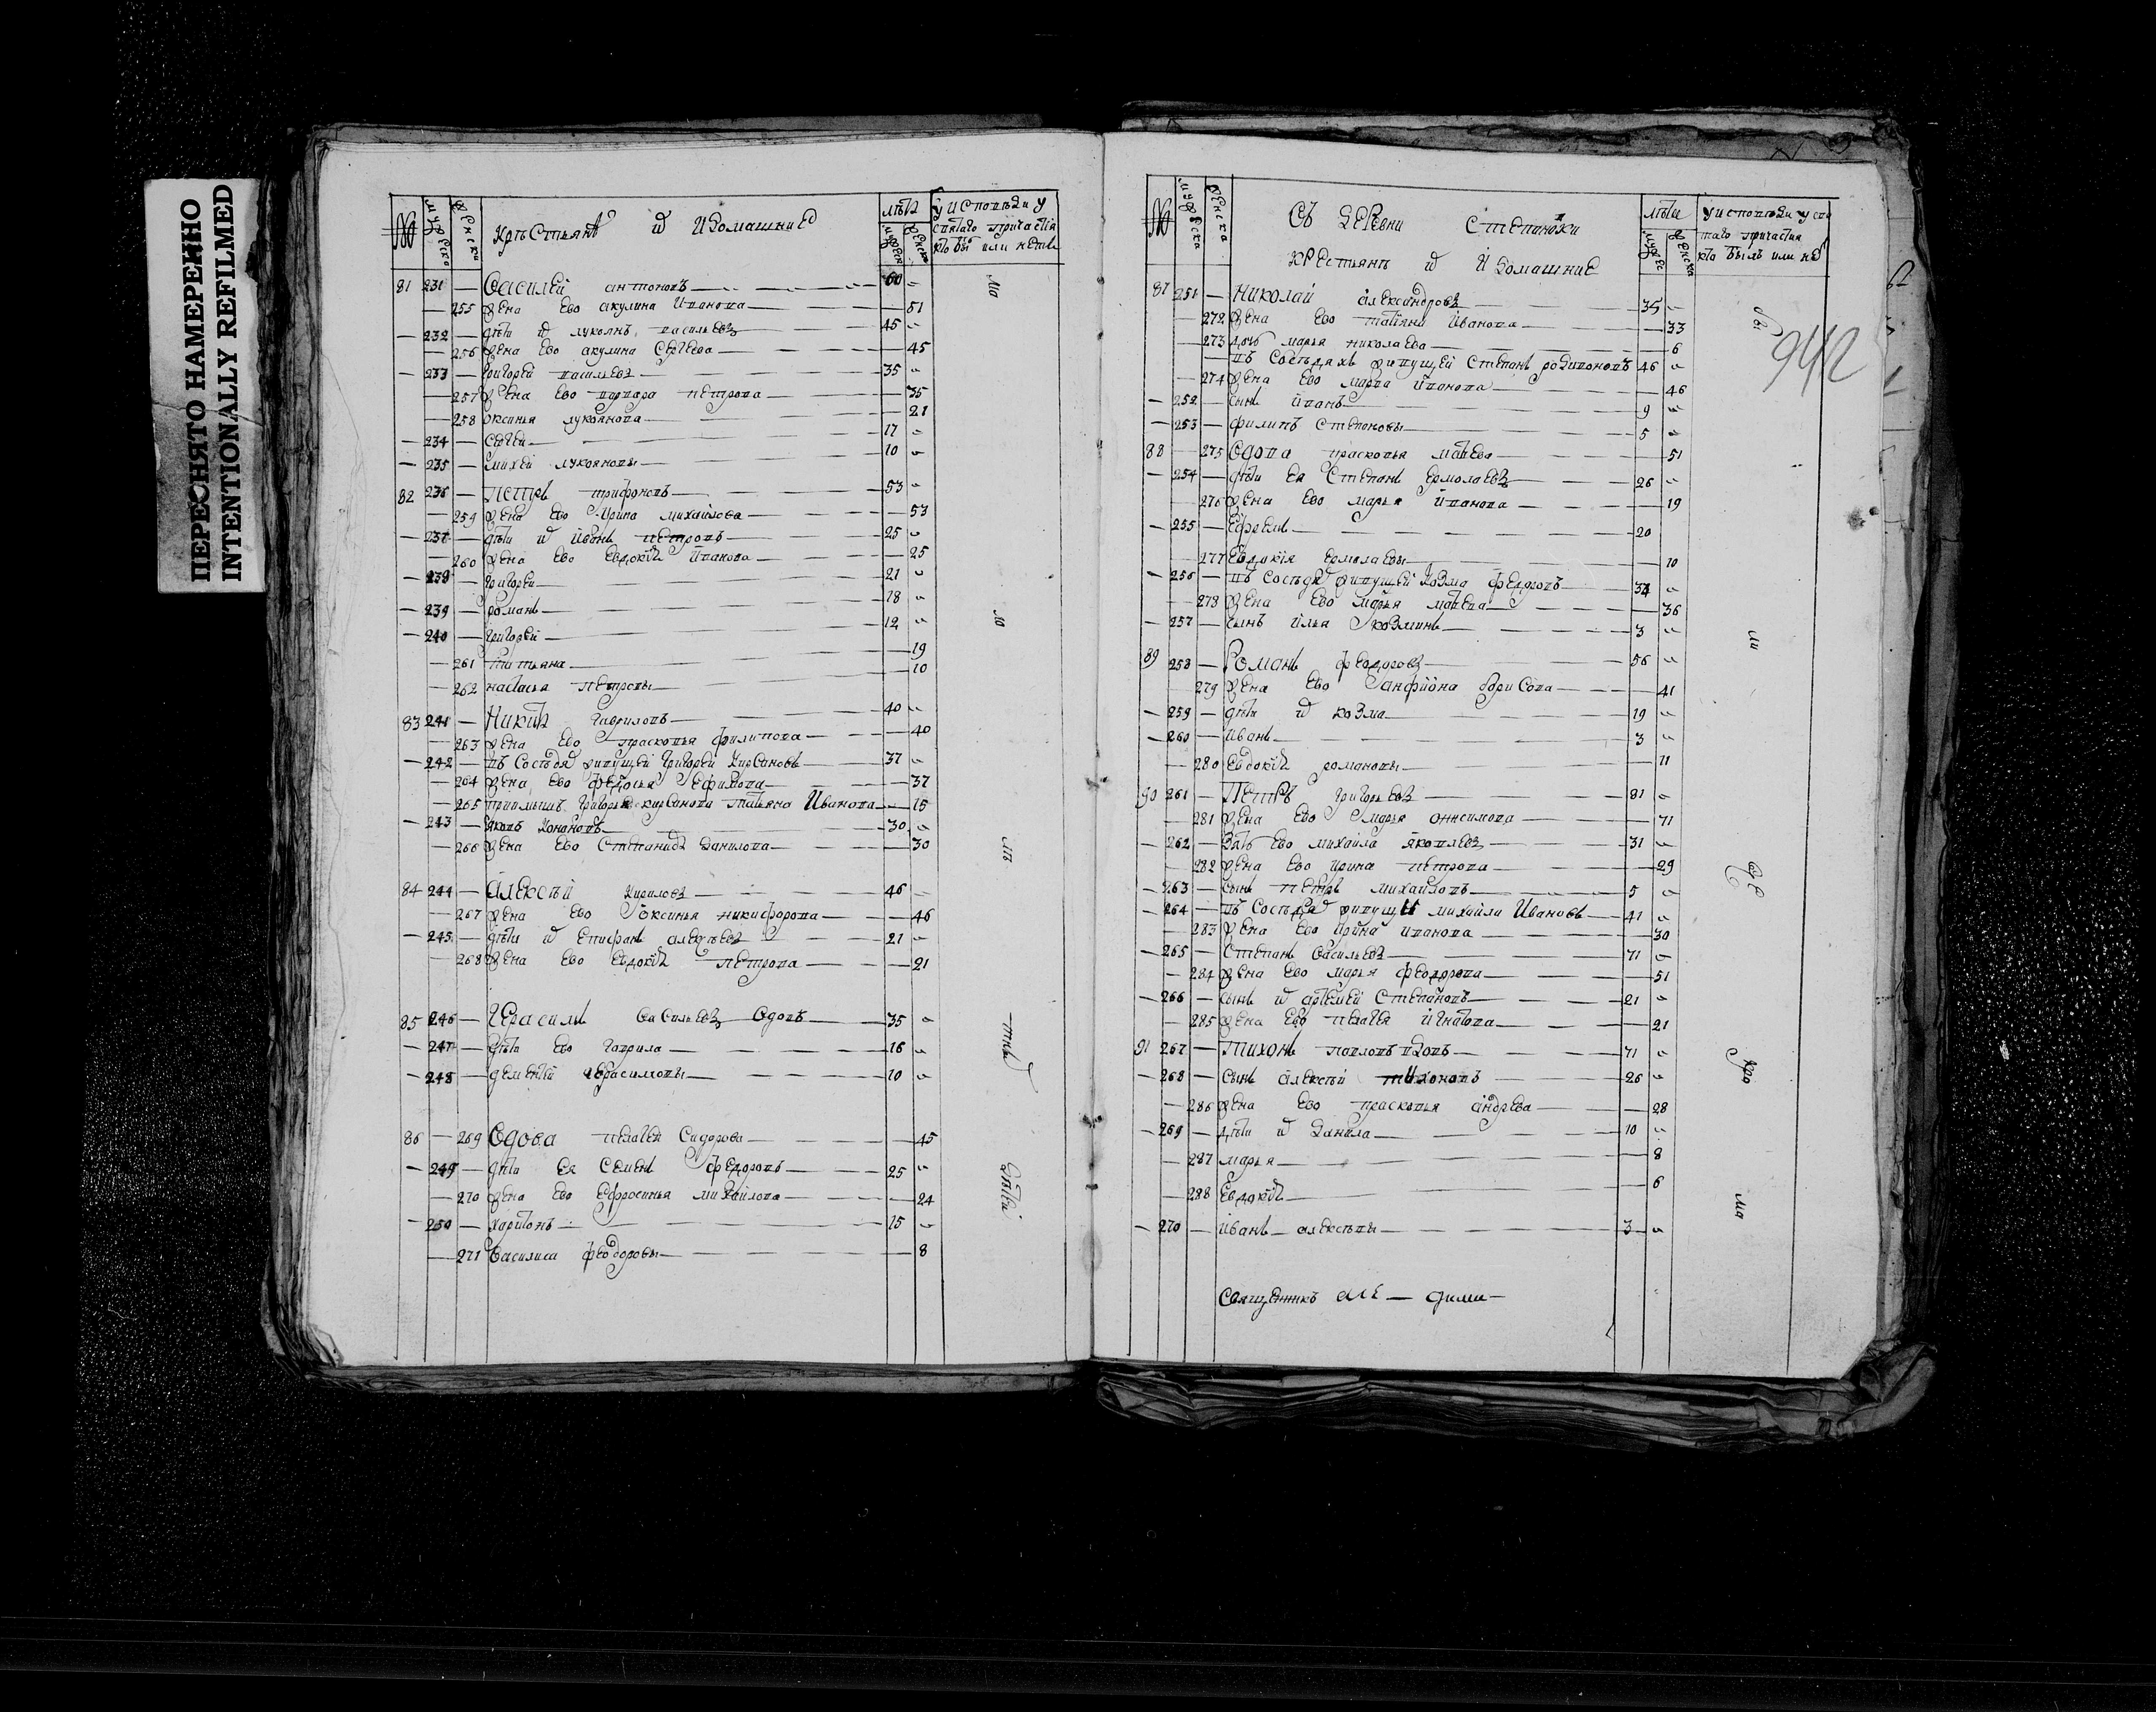 ПЕРЕСНЯТО НАМЕРЕННО
INTENTIONALLY REFILMED
№ мужеска женска крѣстьянѣ и ихъ домашние лѣта у исповѣди у
святаго причастїя
кто бы или нетъ
81 231 — Василей антоновъ — 60 „
— 255 жена Ево акулина Иванова — 51
— 232 — дѣти ихъ лукоянъ васильевъ — 45 „
— 256 жена Ево акулина Сергеева — 45
— 233 — григорей васильевъ — 35 „
— 257 жена Ево варвара петрова — 35
— 258 оксинья лукоянова — 21
— 234 — сергей — 17 „
— 235 — михей лукояновы — 10 „
82 236 — петръ трифоновъ — 53 „
— 259 жена Ево Ирина михайлова — 53
— 237 — дѣти ихъ иванъ петровъ — 25 „
— 260 жена Ево Евдокїя Иванова — 25
— 238 — григорей — 21 „
— 239 — романъ — 18 „
— 240 — григорей — 12 „
— 261 татьяна — 19
— 262 настасья петровы — 10
83 241 — Никита гавриловъ — 40 „
— 263 жена Ево прасковья филипова — 40
— 242 — въ Сосѣдяхъ живущей григорей кирсановъ — 37 „
— 264 жена Ево федосья Ефимова — 37
— 265 приемышъ григорья кирсанова татьяна Иванова — 15
— 243 — яковъ кононовъ — 30 „
— 266 жена Ево Степанида данилова — 30
84 244 — алексѣй кириловъ — 46 „
— 267 жена Ево оксинья никифорова — 46
— 245 — дѣти ихъ Епифанъ алексѣевъ — 21 „
— 268 жена Ево Евдокїя петрова — 21
85 246 — герасимъ васильевъ вдовъ — 35 „
— 247 — дѣти Ево гаврила — 16 „
— 248 — дементей герасимовы — 10 „
86 — 269 вдова пелагея Сидорова — 45
— 249 — дѣти Ея Семенъ федоровъ — 25 „
— 270 жена Ево Ефросинья михайлова — 24
— 250 — харитонъ — 15 „
— 271 василиса феодоровы — 8
942
№ мужеска женска Съ деревни Степановки лѣта у исповѣди у свя
таго причастия
крестьянъ и ихъ домашние кто былъ или не
87 251 — Николай александровъ — 35 „
— 272 жена Ево татїяна иванова — 33
— 273 дочь марья николаева — 6
— въ Сосѣдяхъ живущей Степанъ родивоновъ 46 „
— 274 жена Ево марва иванова — 46
— 252 — сынъ иванъ — 9 „
— 253 — филипъ Степановы — 5 „
88 — 275 вдова прасковья матвева — 51
— 254 — дѣти Ея Степанъ Ермолаевъ — 26 „
— 276 жена Ево марья иванова — 19
— 255 — Ефремъ — 20
— 277 Евдокїя Ермолаевы — 10
— 256 — въ Сосѣдяхъ живущей козма федоровъ — 34 „
— 278 жена Ево марья матвева — 36
— 257 — сынъ илья козминъ — 3 „
89 258 — Романъ феодоровъ — 56 „
— 279 жена Ево борисова — 41
— 259 — дѣти ихъ козма — 19 „
— 260 — иванъ — 3 „
— 280 евдокїя романовы — 11
90 261 — Петръ григорьевъ — 81 „
— 281 жена Ево марья онисимова — 71
— 262 — зять Ево михайла яковлевъ — 31 „
— 282 жена Ево ирина петрова — 29
— 263 — сынъ петръ михайловъ — 5 „
— 264 — въ Сосѣдяхъ живущи михайла Ивановъ — 41 „
— 283 жена Ево ирина иванова — 30
— 265 — Степанъ васильевъ — 71 „
— 284 жена Ево марья феодорова — 51
— 266 — сынъ ихъ артемей Степановъ — 21 „
— 285 жена Ево пелагея игнатова — 21
91 267 — Тихонъ вдовъ — 71 „
— 268 — сынъ алексѣй тихоновъ — 26 „
— 286 жена Ево прасковья андрева — 28
— 269 — дѣти ихъ данила — 10 „
— 287 марья — 8
— 288 Евдокїя — 6
— 270 — иванъ алексѣевы — 3 „
Священникъ але — дими —